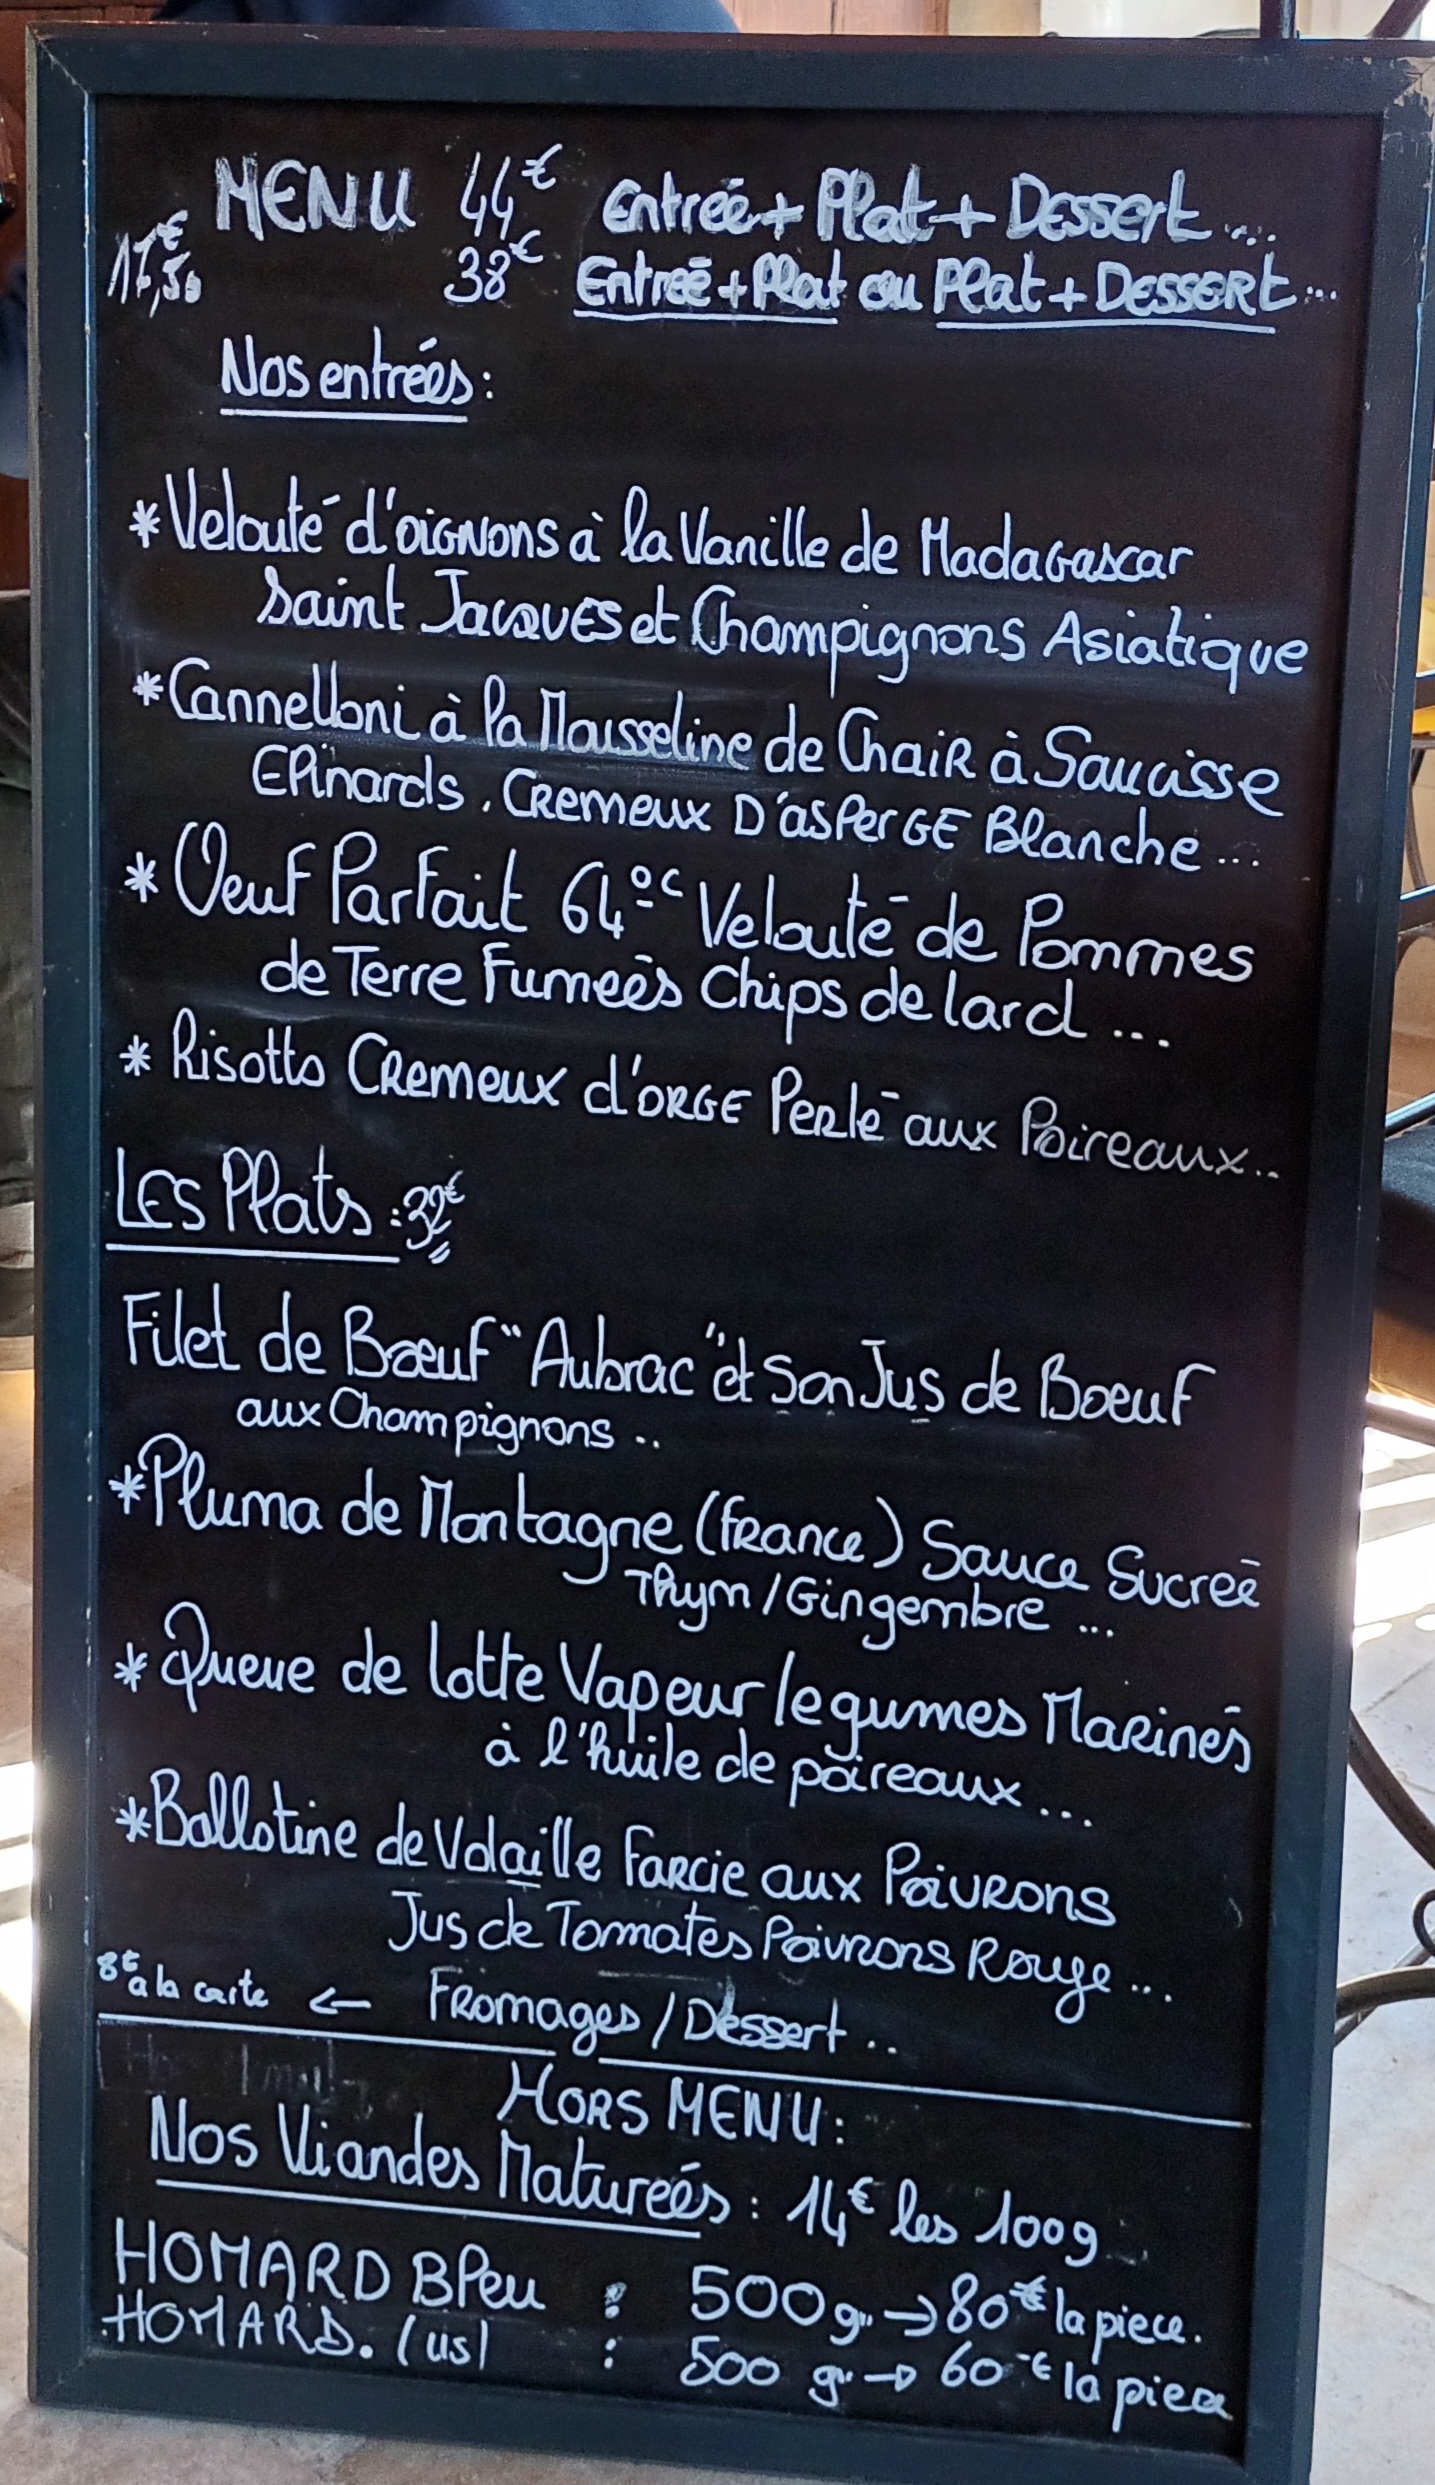 MENU 44€ Entrée + Plat + Dessert ....
17,50€ 38€ Entreé + Plat ou Plat + DESSERT ...
Nos entrées :
* Velouté d'oignons à la Vanille de Madagascar
Saint Jacques et Champignons Asiatique
* Cannelloni à la Mousseline de Chair à Saucisse
EPinards . Cremeux D'asPerGE Blanche ...
* Oeuf Parfait 64°c Velouté de Pommes
de Terre Fumeés Chips de lard ....
* Risotto Cremeux d'ORGE Perlé aux Poireaux..
LES Plats : 32€
Filet de Bœuf "Aubrac" et Son Jus de Boeuf
aux Champignons ..
* Pluma de Montagne (France) Sauce Sucreé
Thym / Gingembre ...
* Queue de lotte Vapeur legumes Marinés
à l'huile de poireaux ...
* Ballotine de Volaille Farcie aux Poivrons
Jus de Tomates Poivrons Rouge ...
8€ a la carte ← Fromages / Dessert ..
HORS MENU :
Nos Viandes Matureés : 14€ les 100g
HOMARD BLeu : 500 gr → 80€ la piece.
HOMARD. (us) : 500 gr → 60€ la piece